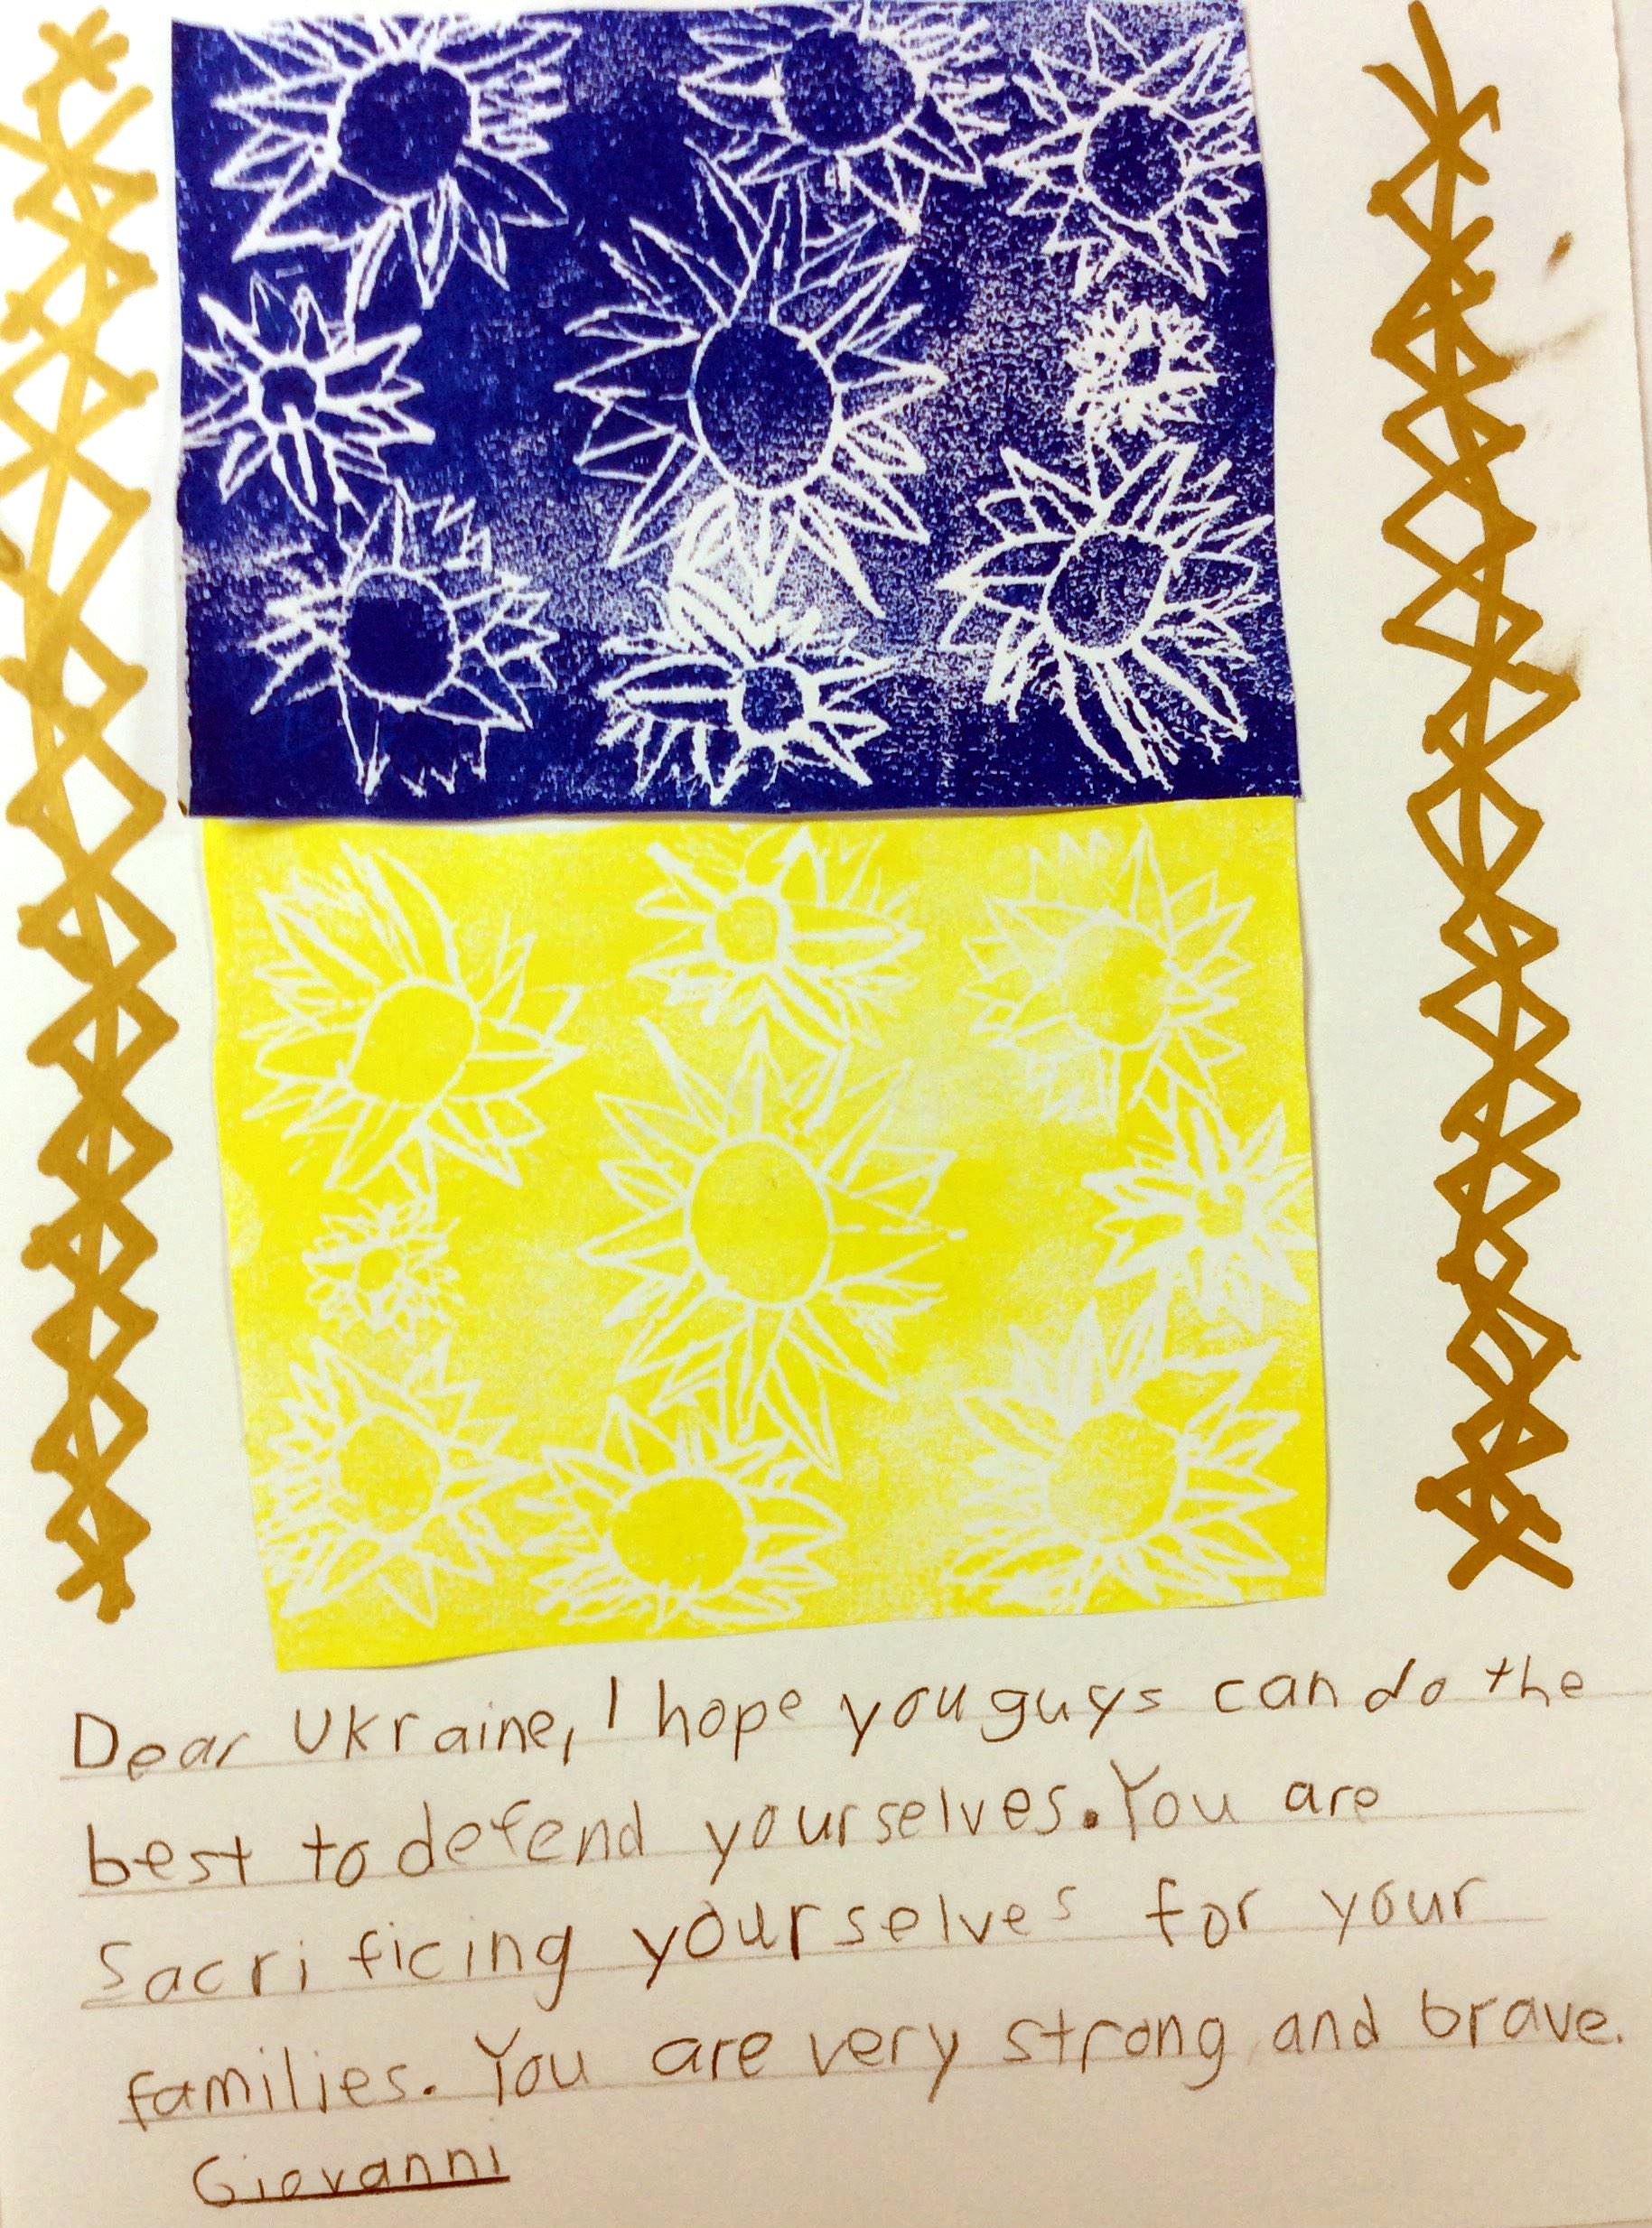 Dear Ukraine, I hope you guys can do the
best to defend yourselves. You are
Sacrificing yourselves for your
families. You are very strong and brave.
Giovanni